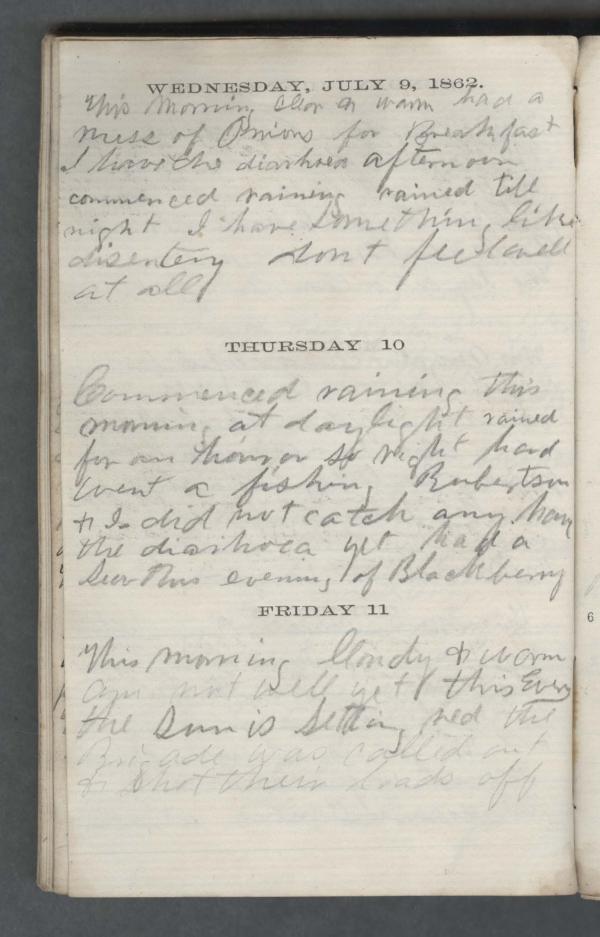 WEDNESDAY, JULY 9, 1862.
This morning clear & warm had a
mess of Onions for Breakfast
I have the diarhoea afternoon
commenced raining rained till
night I have something like
disentery dont feel well
at all
THURSDAY 10
Commenced raining this
morning at daylight rained
for an hour or so right hard
went a fishing Robertson
& I did not catch any have
the diarhoea yet had a
this evening of Blackberry
FRIDAY 11
This morning Cloudy & warm
am not well yet this Eveng
the Sun is setting red the
Brigade was called out
& shot their loads off
6